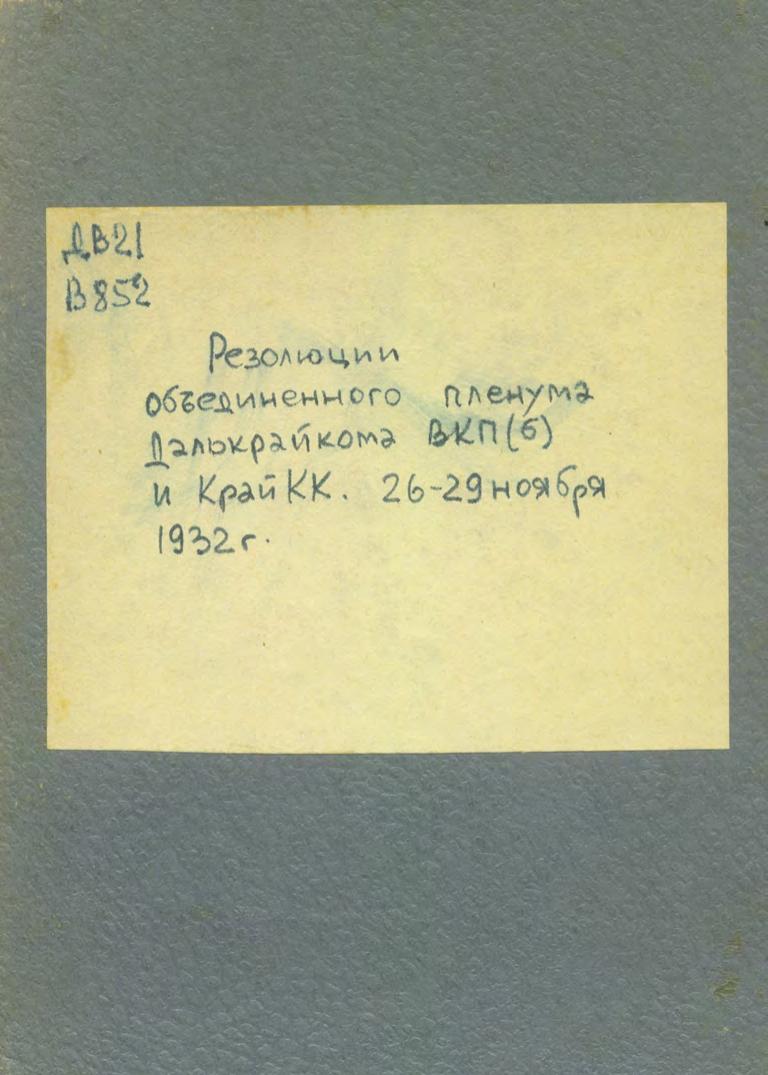 ДВ21
В852
Резолюции
объединенного пленума
Далькрайкома ВКП(б)
и КрайКК. 26-29 ноября
1932 г.